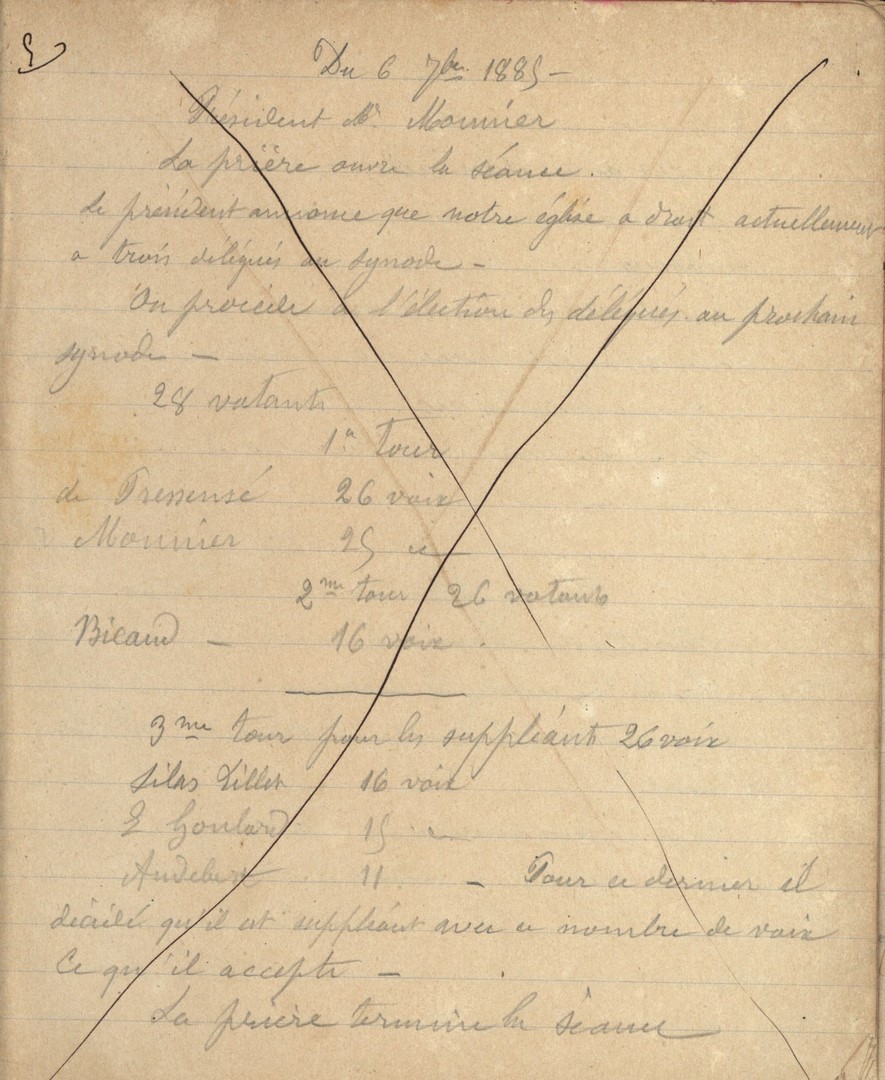 Du 6 7bre 1885 -
Président Mr Mounier
La prière ouvre la séance.
Le président annonce que notre église a droit actuellement
a trois délégués au synode -
On procède à l'élection des délégués au prochain
synode -
28 votants
1er tour
de Pressensé 26 voix
Mounier 25
2me tour 26 votants
Bicaud - 16 voix
3me tour pour les suppléants 26 voix
Silas Lillet 16 voix
E Goulard 15
Audebert 11 - Pour ce dernier il
décidé qu'il est suppléant avec ce nombre de voix
Ce qu'il accepte -
La prière termine la séance